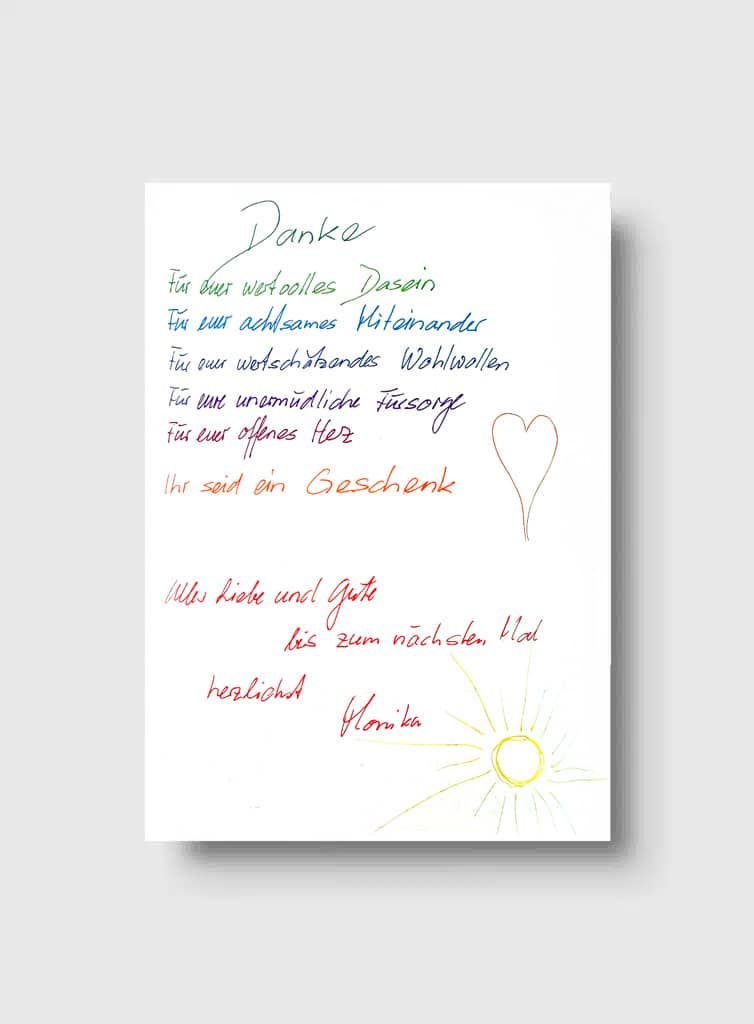 Danke
Für euer wertvolles Dasein
Für euer achtsames Miteinander
Für euer wertschätzendes Wohlwollen
Für eure unermüdliche Fürsorge
Für euer offenes Herz
Ihr seid ein Geschenk
Alles Liebe und Gute
bis zum nächsten Mal
herzlichst
Monika